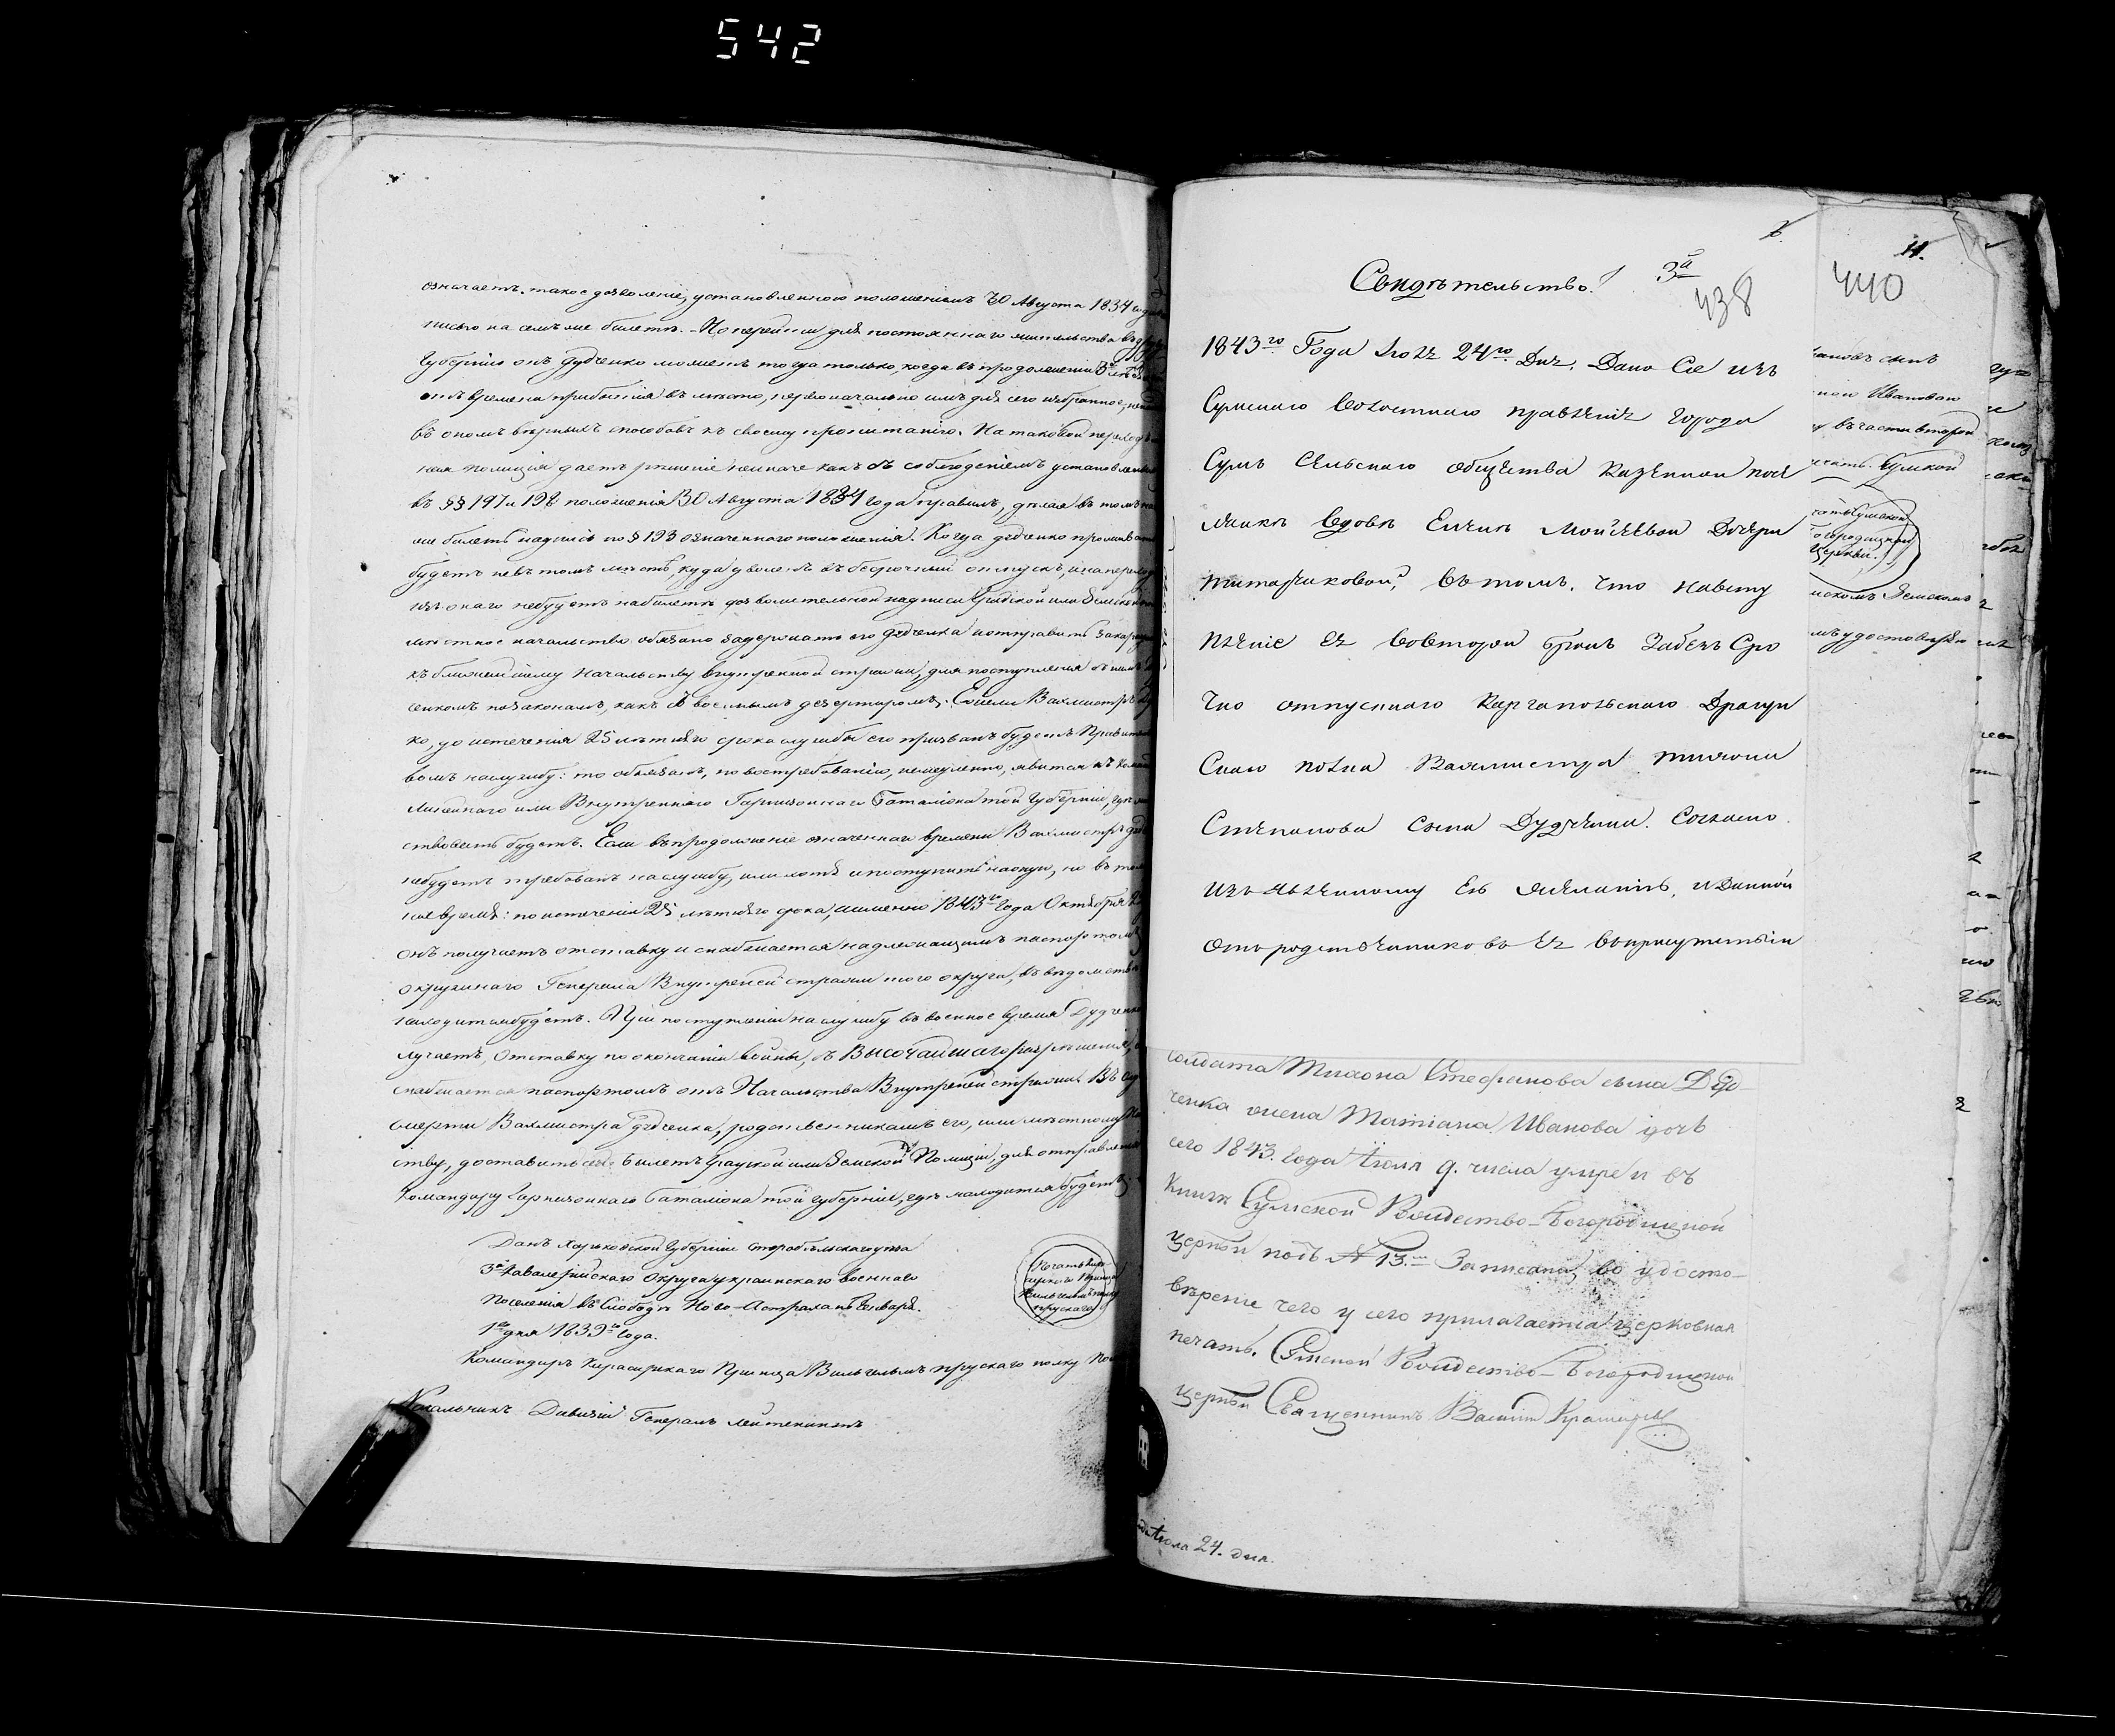 542
означаетъ такое дозволеніе, установленною положеніемъ 30 Августа 1834 года
писью на семъ же билетѣ. - Но перейти для постояннаго жительства въ
Губернію онъ Дудченко можетъ тогда только, когда въ продолженіи 3хъ лѣтъ
отъ времени прибытія въ мѣсто, первоначально имъ для сего избранное,
въ ономъ вѣрныхъ способовъ къ своему пропитанію. На таковой переходъ
ная полиція даетъ рѣшеніе неиначе какъ съ соблюденіемъ установленныхъ
въ §§ 197 и 198 положенія 30 Августа 1834 года правилъ, дѣлая въ томъ
же билетѣ надпись по § 193 означеннаго положенія. Когда Дудченко проживать
будетъ невъ томъ мѣстѣ, куда уволенъ въ безсрочный отпускъ, и на переходъ
изъ онаго небудетъ на билетѣ дозволительной надписи Градской или Земской
мѣстное начальство обязано задержать его Дудченка и отправить за карауломъ
къ ближайшему Начальству внутренной стражи, для поступленія съ нимъ
скомъ позаконамъ, какъ съ военнымъ дезертиромъ. Ежели Вахмистръ
ко, до истеченія 25 лѣтняго срока службы его призванъ будетъ Правительст
вомъ наслужбу: то обязанъ, по востребованію, немедленно, явится къ
Линейнаго или Внутренняго Гарнизоннаго Баталіона той Губерніи, гдѣ
ствовать будетъ. Если въпродолженіе означеннаго времени Вахмистръ
небудетъ требованъ наслужбу, или хотя и поступитъ наоную, но въ
ное время: по истеченіи 25 лѣтняго срока, имянно 1843го Года Октября
онъ получаетъ отставку и снабжается надлежащимъ паспортомъ
окружнаго Генерала Внутреней стражи того округа, въ вѣдомствѣ
находитсябудетъ. При поступленіи на службу въ военное время Дудченко
лучаетъ, отставку по окончаніи войны, съ Высочайшаго разрѣшенія,
снабжается паспортомъ отъ Начальства Внутреней стражи. Въ
смерти Вахмистра Дудченка, родственникамъ его, или мѣстному
ству, доставить сей билетъ Градской или Земской Полиціи, для отправленія
Командиру Гарнизоннаго Баталіона той губерніи, гдѣ находится будетъ.
Данъ Харьковской Губерніи Старобѣльскагоуѣзда
3го Кавалерійскаго Округа украинскаго военнаго
Поселенія въ Слободѣ Ново-Астрахани Генваря.
1го дня 1839го Года.
Командиръ Кирасирскаго Принца Вильгельма прускаго полку
Начальникъ Дивизіи Генералъ Лейтенантъ
Свидѣтельство!
3й
438
1843го Года Іюля 24го Дня, Дано Сіе изъ
Сумскаго волостнаго правленія города
Сумъ Сельскаго общества Казенной посе
лянкѣ вдовѣ Еленѣ Мойсѣевой Дочери
Титарчиковой, въ томъ, что навсту
пленіе ея вовторой бракъ Забезъ Сро
чно отпускнаго Каргапольскаго Драгун
Скаго полка Вахмистра Тихона
Степанова Сына Дудченка. Согласно.
Изъявленному Ею желанію, и данной
Отъ родственниковъ Ея въприсутствіи
солдата Тихона Стефанова сына Дуд
ченка жена Татіана Иванова дочь
сего 1843. года Іюля 9. числа умре и въ
книгѣ Сумской Рождество-Богородичной
церкви подъ № 13.м Записана, во удосто-
вѣреніе чего у сего прилагается церковная
печать. Сумской Рождество-Богородичной
церкви Священникъ Василій
Іюля 24. дня.
11.
440
сынъ
Ивановою
въ части второй
Сумской
церкви.
Земскомъ
удостовѣрен